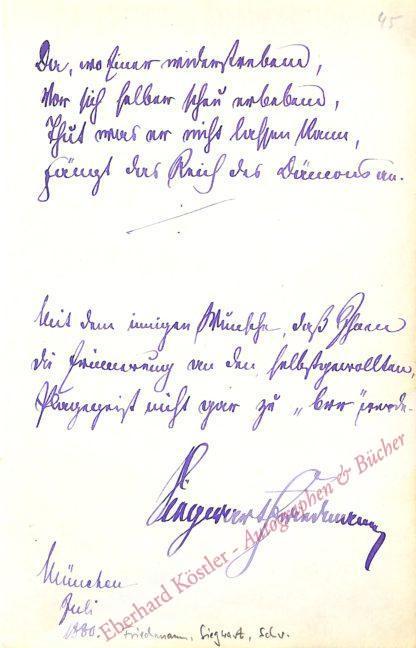 45
Da, wo Einer widerstrebend,
Vor sich selber scheu erbebend,
Thut was er nicht lassen kann,
Fängt das Reich des Dämons an.
Mit dem innigen Wunsche, daß Ihnen
die Erinnerung an den selbstgewollten
Plagegeist nicht gar zu „ werde.
Siegwart Friedmann
München
Juli
1880.
Friedmann, Siegwart, Schr.
Eberhard Köstler - Autographen & Bücher